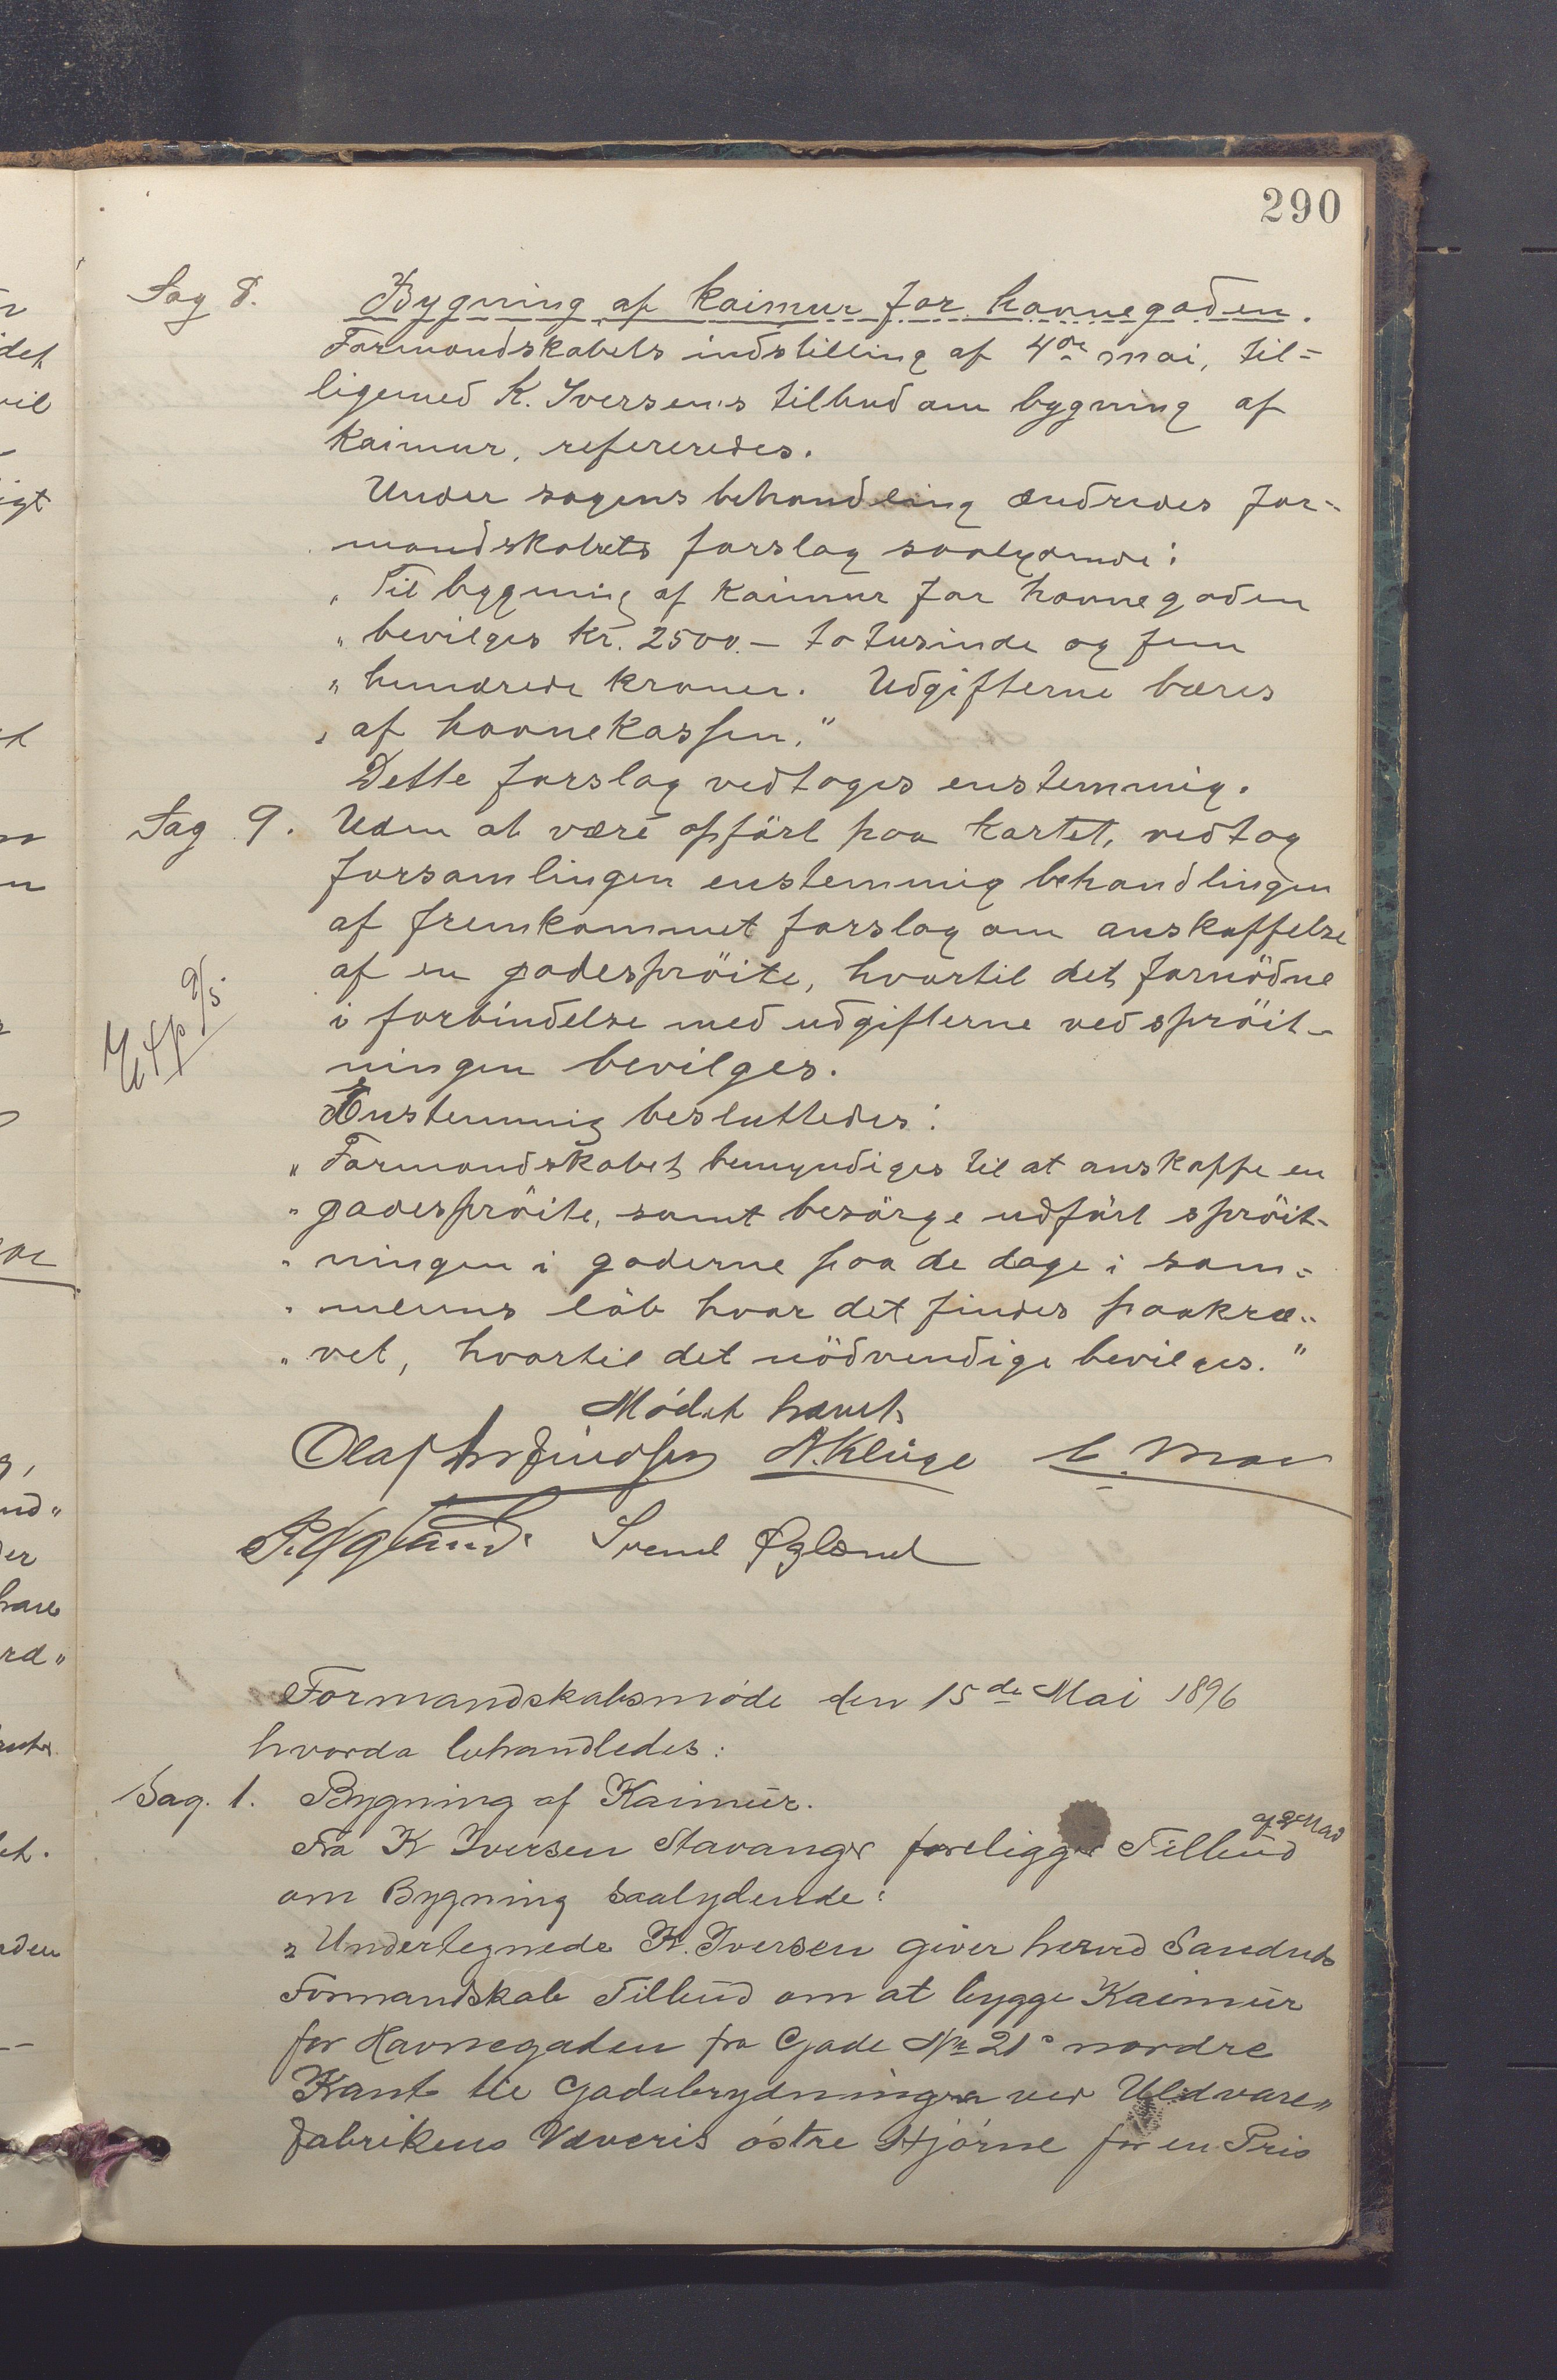 290
Sag 8. Bygning af kaimur for havnegaden.
Formandskabets indstilling af 4de mai, til=
ligemed K. Iversens tilbud om bygning af
kaimur, refereredes.
Under sagens behandling ændredes for-
mandskabets forslag saalydende:
„Til bygning af kaimur for havnegaden
„bevilges kr. 2500.— to tusinde og fem
„hundrede kroner. Udgifterne bæres
„af havnekassen."
Dette forslag vedtoges enstemmig.
Sag 9. Uden at være opført paa kartet, vedtog
forsamlingen enstemmig behandlingen
af fremkommet forslag om anskaffelse
af en gadespröite, hvortil det fornödne
i forbindelse med udgifterne ved spröit-
ningen bevilges.
9/5.
Enstemmig besluttedes:
„Formandskabet bemyndiges til at anskaffe en
„gadespröite, samt besörge udfört spröit-
„ningen i gaderne paa de dage i som=
„merens löb hvor det findes paakræ-
„vet, hvortil det nödvendige bevilges."
Mødet hævet
Olaf A. Kluge
Svend Øglænd
Formandskabsmøde den 15de Mai 1896
hvorda behandledes:
Sag. 1. Bygning af Kaimur.
Fra K Iversen Stavanger foreligger Tilbud
om Bygning saalydende:
„Undertegnede K. Iversen giver herved Sandnes
Formandskab Tilbud om at bygge Kaimur
for Havnegaden fra Gade No 21s nordre
Kant til Gadebrydningen ved Uldvare„
fabrikens Væveris østre Hjørne for en Pris